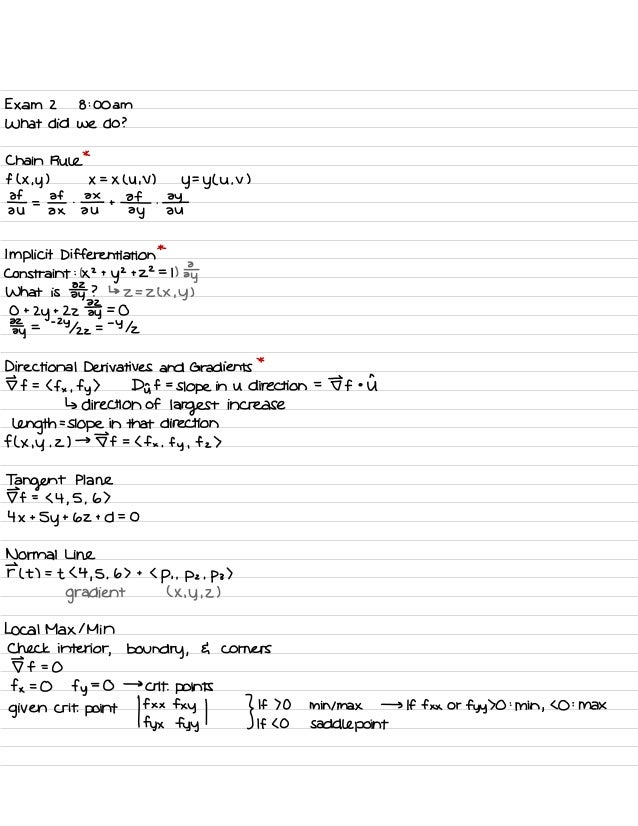 Exam 2 8:00am
What did we do?
Chain Rule*
f(x,y) x=x(u,v) y=y(u,v)
∂f/∂u = ∂f/∂x · ∂x/∂u + ∂f/∂y · ∂y/∂u
Implicit Differentiation*
Constraint: (x² + y² + z² = 1) ∂/∂y
What is ∂z/∂y? ↳ z=z(x,y)
0 + 2y + 2z ∂z/∂y = 0
∂z/∂y = -2y/2z = -y/z
Directional Derivatives and Gradients*
∇⃗f = <fx, fy> Dûf = slope in u direction = ∇⃗f • û
↳ direction of largest increase
length = slope in that direction
f(x,y,z) → ∇⃗f = <fx, fy, fz>
Tangent Plane
∇⃗f = <4,5,6>
4x + 5y + 6z + d = 0
Normal Line
r⃗(t) = t<4,5,6> + <p₁, p₂, p₃>
gradient (x,y,z)
Local Max/Min
Check interior, boundry, & corners
∇⃗f = 0
fx = 0 fy = 0 → crit. points
given crit. point |fxx fxy| } If >0 min/max → If fxx or fyy >0: min, <0: max
|fyx fyy| } If <0 saddle point